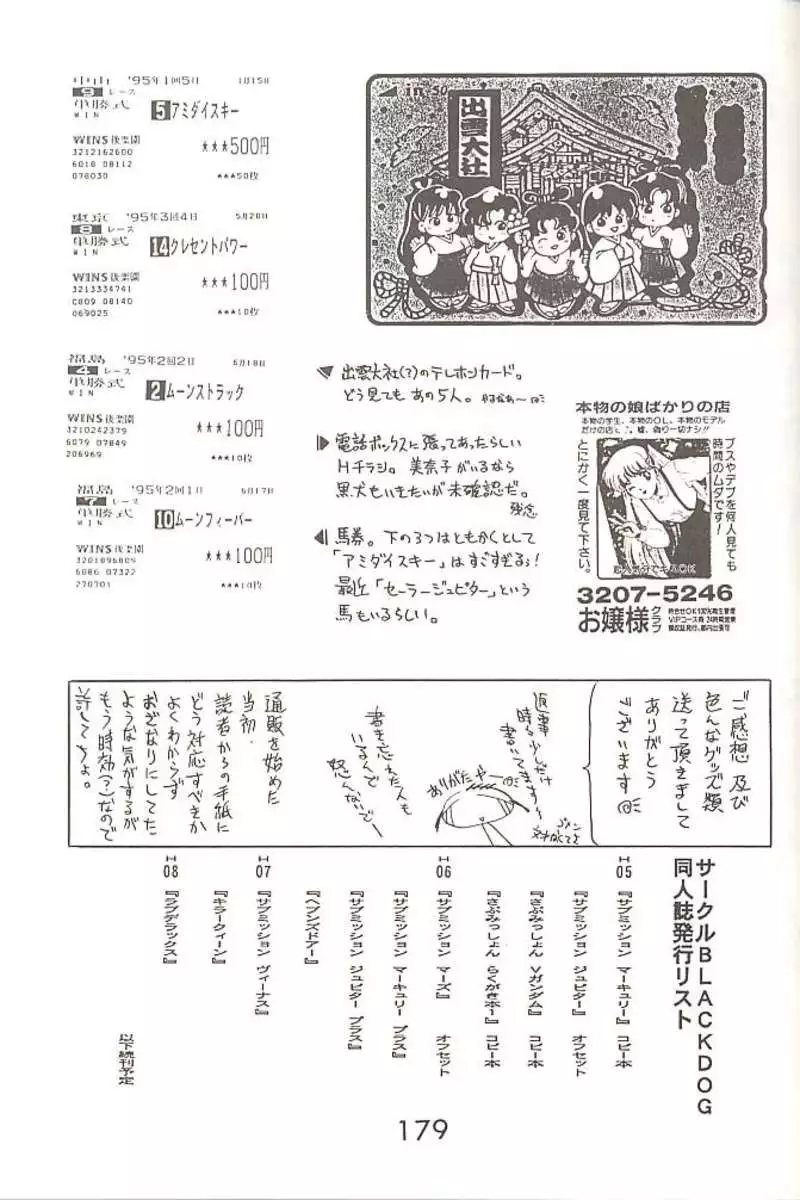 中山 '95年1回5日 1月15日
9 レース
単勝式 5 アミダイスキー
WIN
WINS後楽園 ★★★500円
3212162600
6018 08112
078030 ★★★50枚
東京 '95年3回4日 5月28日
8 レース
単勝式 14 クレセントパワー
WIN
WINS後楽園 ★★★100円
3213334741
C809 08140
069025 ★★★10枚
福島 '95年2回2日 6月18日
4 レース
単勝式 2 ムーンストラック
WIN
WINS後楽園 ★★★100円
3210242379
6079 07849
206969 ★★★10枚
福島 '95年2回1日 6月17日
7 レース
単勝式 10 ムーンフィーバー
WIN
WINS後楽園 ★★★100円
3201096809
6086 07322
270701 ★★★10枚
in 50
出雲大社
出雲大社(?)のテレホンカード。
どう見てもあの5人。
電話ボックスに張ってあったらしい
Hチラシ。美奈子がいるなら
黒犬もいきたいが未確認だ。
残念
馬券。下の3つはともかくとして
「アミダイスキー」はすごすぎるぅ!
最近「セーラージュピター」という
馬もいるらしい。
本物の娘ばかりの店
本物の学生、本物のOL、本物のモデル
ブスやデブを何人見ても
時間のムダです!
とにかく一度見て下さい。
3207-5246
お嬢様クラブ
ご感想 及び
色んなグッズ類
送って頂きまして
ありがとう
ございます
返事
時々少しだけ
書いてます〜
ありがたや〜
書き忘れた人も
いるんで
怒んないで〜
通販を始めた
当初、
読者からの手紙に
どう対応すべきか
よくわからず
おざなりにしてた
ような気がするが
もう時効(?)なので
許してちょ。
サークルBLACKDOG
同人誌発行リスト
H05 『サブミッション マーキュリー』 コピー本
『サブミッション ジュピター』 オフセット
『さぶみっしょん Vガンダム』 コピー本
『さぶみっしょん らくがき本1』 コピー本
H06 『サブミッション マーズ』 オフセット
『サブミッション マーキュリー プラス』
『サブミッション ジュピター プラス』
『ヘブンズドアー』
H07 『サブミッション ヴィーナス』
『キラークィーン』
H08 『ラブデラックス』
以下続刊予定
179